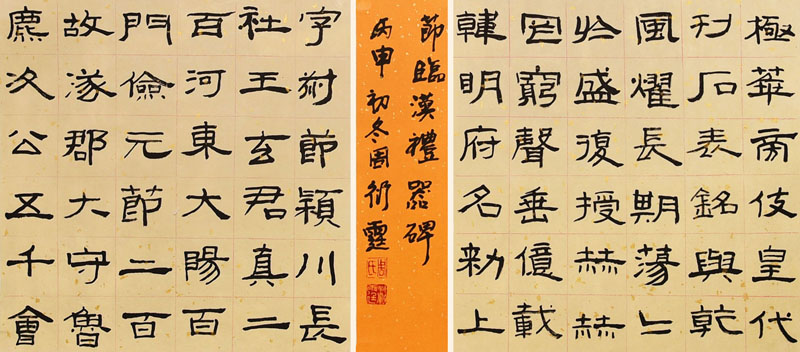 極華旁伎皇代
刊石表銘與乾
風燿長期蕩二
於盛復授赫赫
罔窮聲垂億載
韓明府名勑上
節臨漢禮器碑
丙申初冬周靈
字叔節潁川長
社王玄君真二
百河東大陽百
門儉元節二百
故涿郡大守魯
麃次公五千會